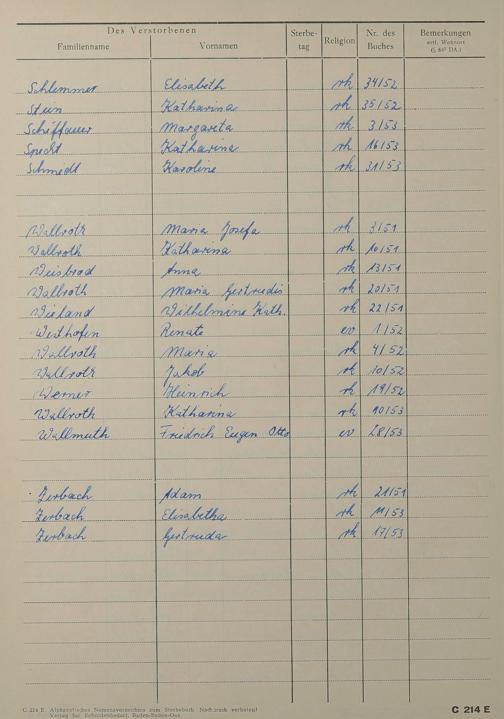 Des Verstorbenen
Familienname Vornamen Sterbe-tag Religion Nr. des Buches Bemerkungen
Schlemmer Elisabeth rk 34/52
Stein Katharina rk 35/52
Schiffauer Margareta rk 3/53
Specht Katharina rk 16/53
Schmidt Karoline rk 31/53
Wallroth Maria Josefa rk 3/51
Wallroth Katharina rk 10/51
Weisbrod Anna rk 13/51
Wallroth Maria Gertrudis rk 20/51
Wieland Wilhelmine Kath. rk 22/51
Westhofen Renate ev 1/52
Wallroth Maria rk 4/52
Wallroth Jakob rk 10/52
Werner Heinrich rk 19/52
Wallroth Katharina rk 10/53
Wallmuth Friedrich Eugen Otto ev 28/53
Zerbach Adam rk 21/51
Zerbach Elisabetha rk 11/53
Zerbach Gertruda rk 17/53
C 214 E Alphabetisches Namensverzeichnis zum Sterbebuch Nachdruck verboten!
Verlag für Behördenbedarf, Baden-Baden-Oos
C 214 E